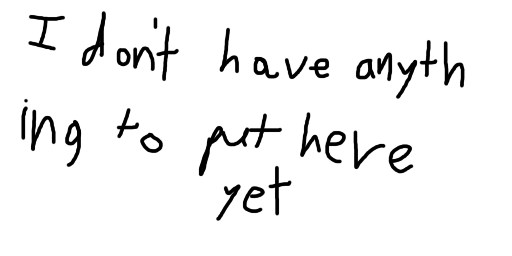 I don't have anyth
ing to put here
yet